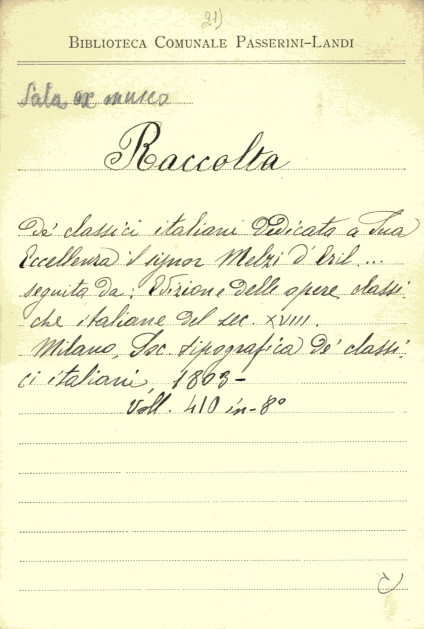 21)
BIBLIOTECA COMUNALE PASSERINI-LANDI
Sala ex museo
Raccolta
de' classici italiani dedicata a Sua
Eccellenza il signor Melzi d'Eril ...
seguita da: Edizione delle opere classi
che italiane del sec. XVIII.
Milano, Soc. tipografica de' classi,
ci italiani, 1803-
Voll. 410 in-8°